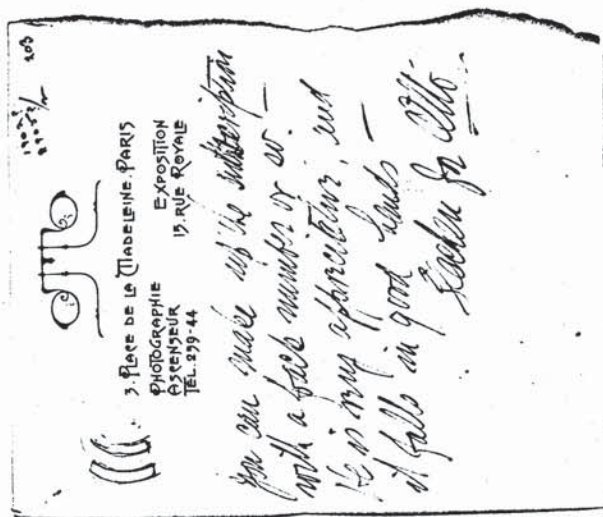 203
3. PLACE DE LA MADELEINE. PARIS
PHOTOGRAPHIE
ASCENSEUR
EXPOSITION
15. RUE ROYALE
you can make up the subscription
with a back number or so. —
He is very appreciative, and
it falls in good hands —
for Otto